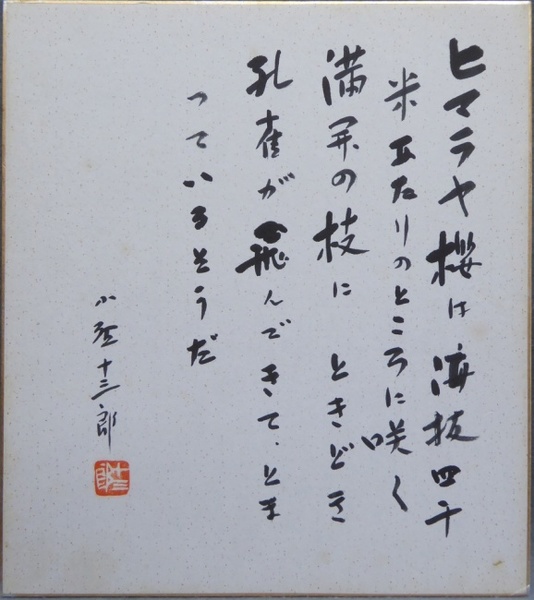 ヒマラヤ櫻は海抜四千
米あたりのところに咲く
満開の枝に ときどき
孔雀が飛んできて、とま
っているそうだ
小野十三郎
十三郎